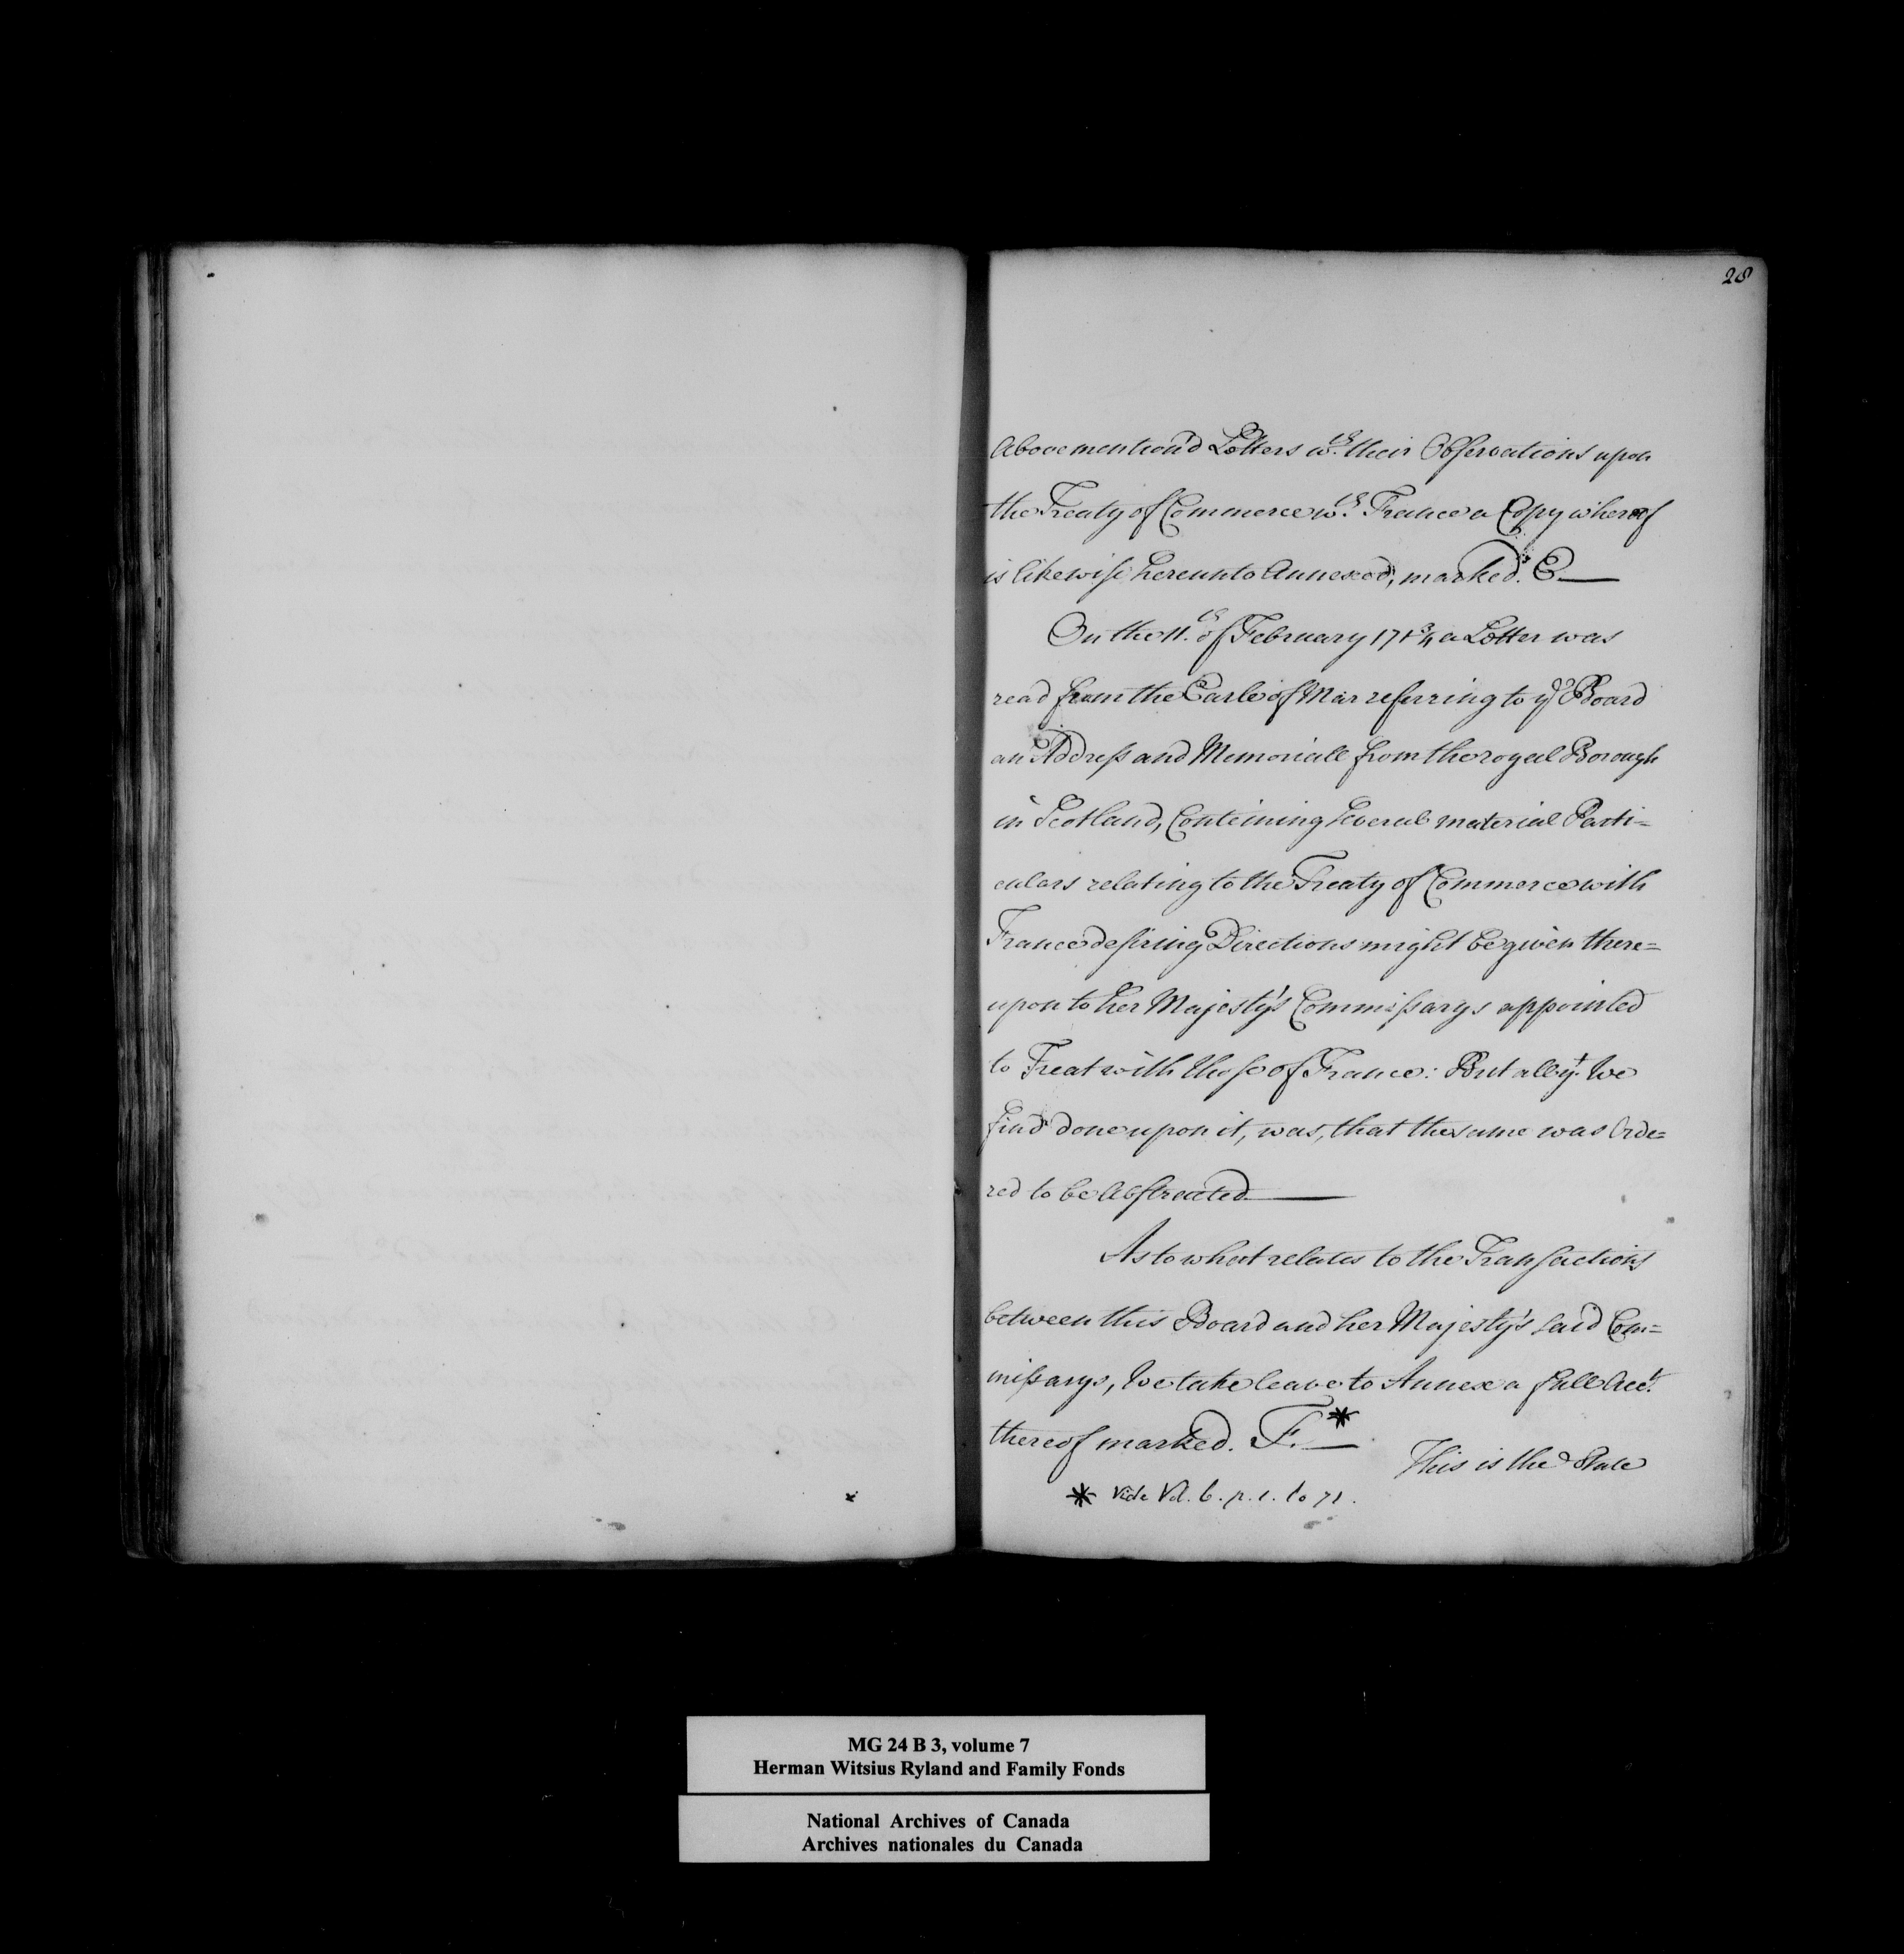 28
Abovemention'd Letters wth. their Observations upon
the Treaty of Commerce wth. France a Copy whereof
is likewise hereunto Annexed, marked. E.—
On the 11.th of February 171¾ a Letter was
read from the Earle of Mar referring to ye Board
an Address and Memoriall from the royal Borough
in Scotland, Conteining several material Parti=
culars relating to the Treaty of Commerce with
France desiring Directions might be given there=
upon to her Majesty's Commissarys appointed
to Treat with those of France: But all yt. We
find done upon it, was, that the same was Orde=
red to be Abstracted.—
As to what relates to the Transactions
between this Board and her Majesty's said Com=
missarys, We take leave to Annex a full Acct.
thereof marked. F.*—
This is the State
* Vide Vol. 6. p. 1. to 71.
MG 24 B 3, volume 7
Herman Witsius Ryland and Family Fonds
National Archives of Canada
Archives nationales du Canada